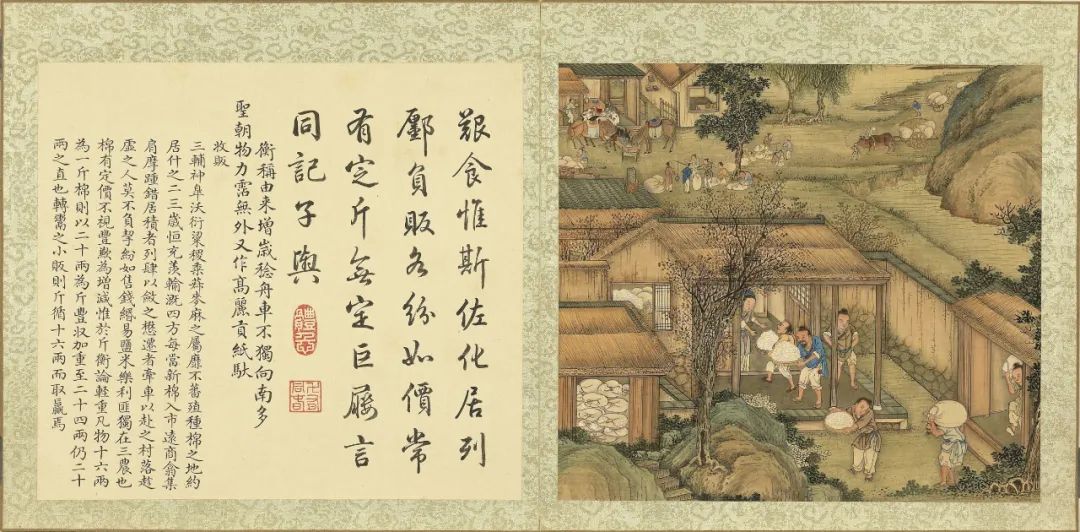 艱食惟斯佐化居列
鄽負販各紛如價常
有定斤無定巨屨言
同記子輿
衡稱由来增歲稔舟車不獨向南多
聖朝物力霑無外又作髙麗貢紙馱
收販
三輔神皋沃衍粱稷黍菽麥麻之屬靡不蕃殖種棉之地約
居什之二三歲恒充羨輸溉四方每當新棉入市遠商翕集
肩摩踵錯居積者列肆以斂之懋遷者牽車以赴之村落趁
虛之人莫不負挈紛如售錢緡易鹽米樂利匪獨在三農也
棉有定價不視豐歉為增減惟於斤衡論輕重凡物十六兩
為一斤棉則以二十兩為斤豐收加重至二十四兩仍二十
兩之直也轉鬻之小販則斤循十六兩而取贏焉